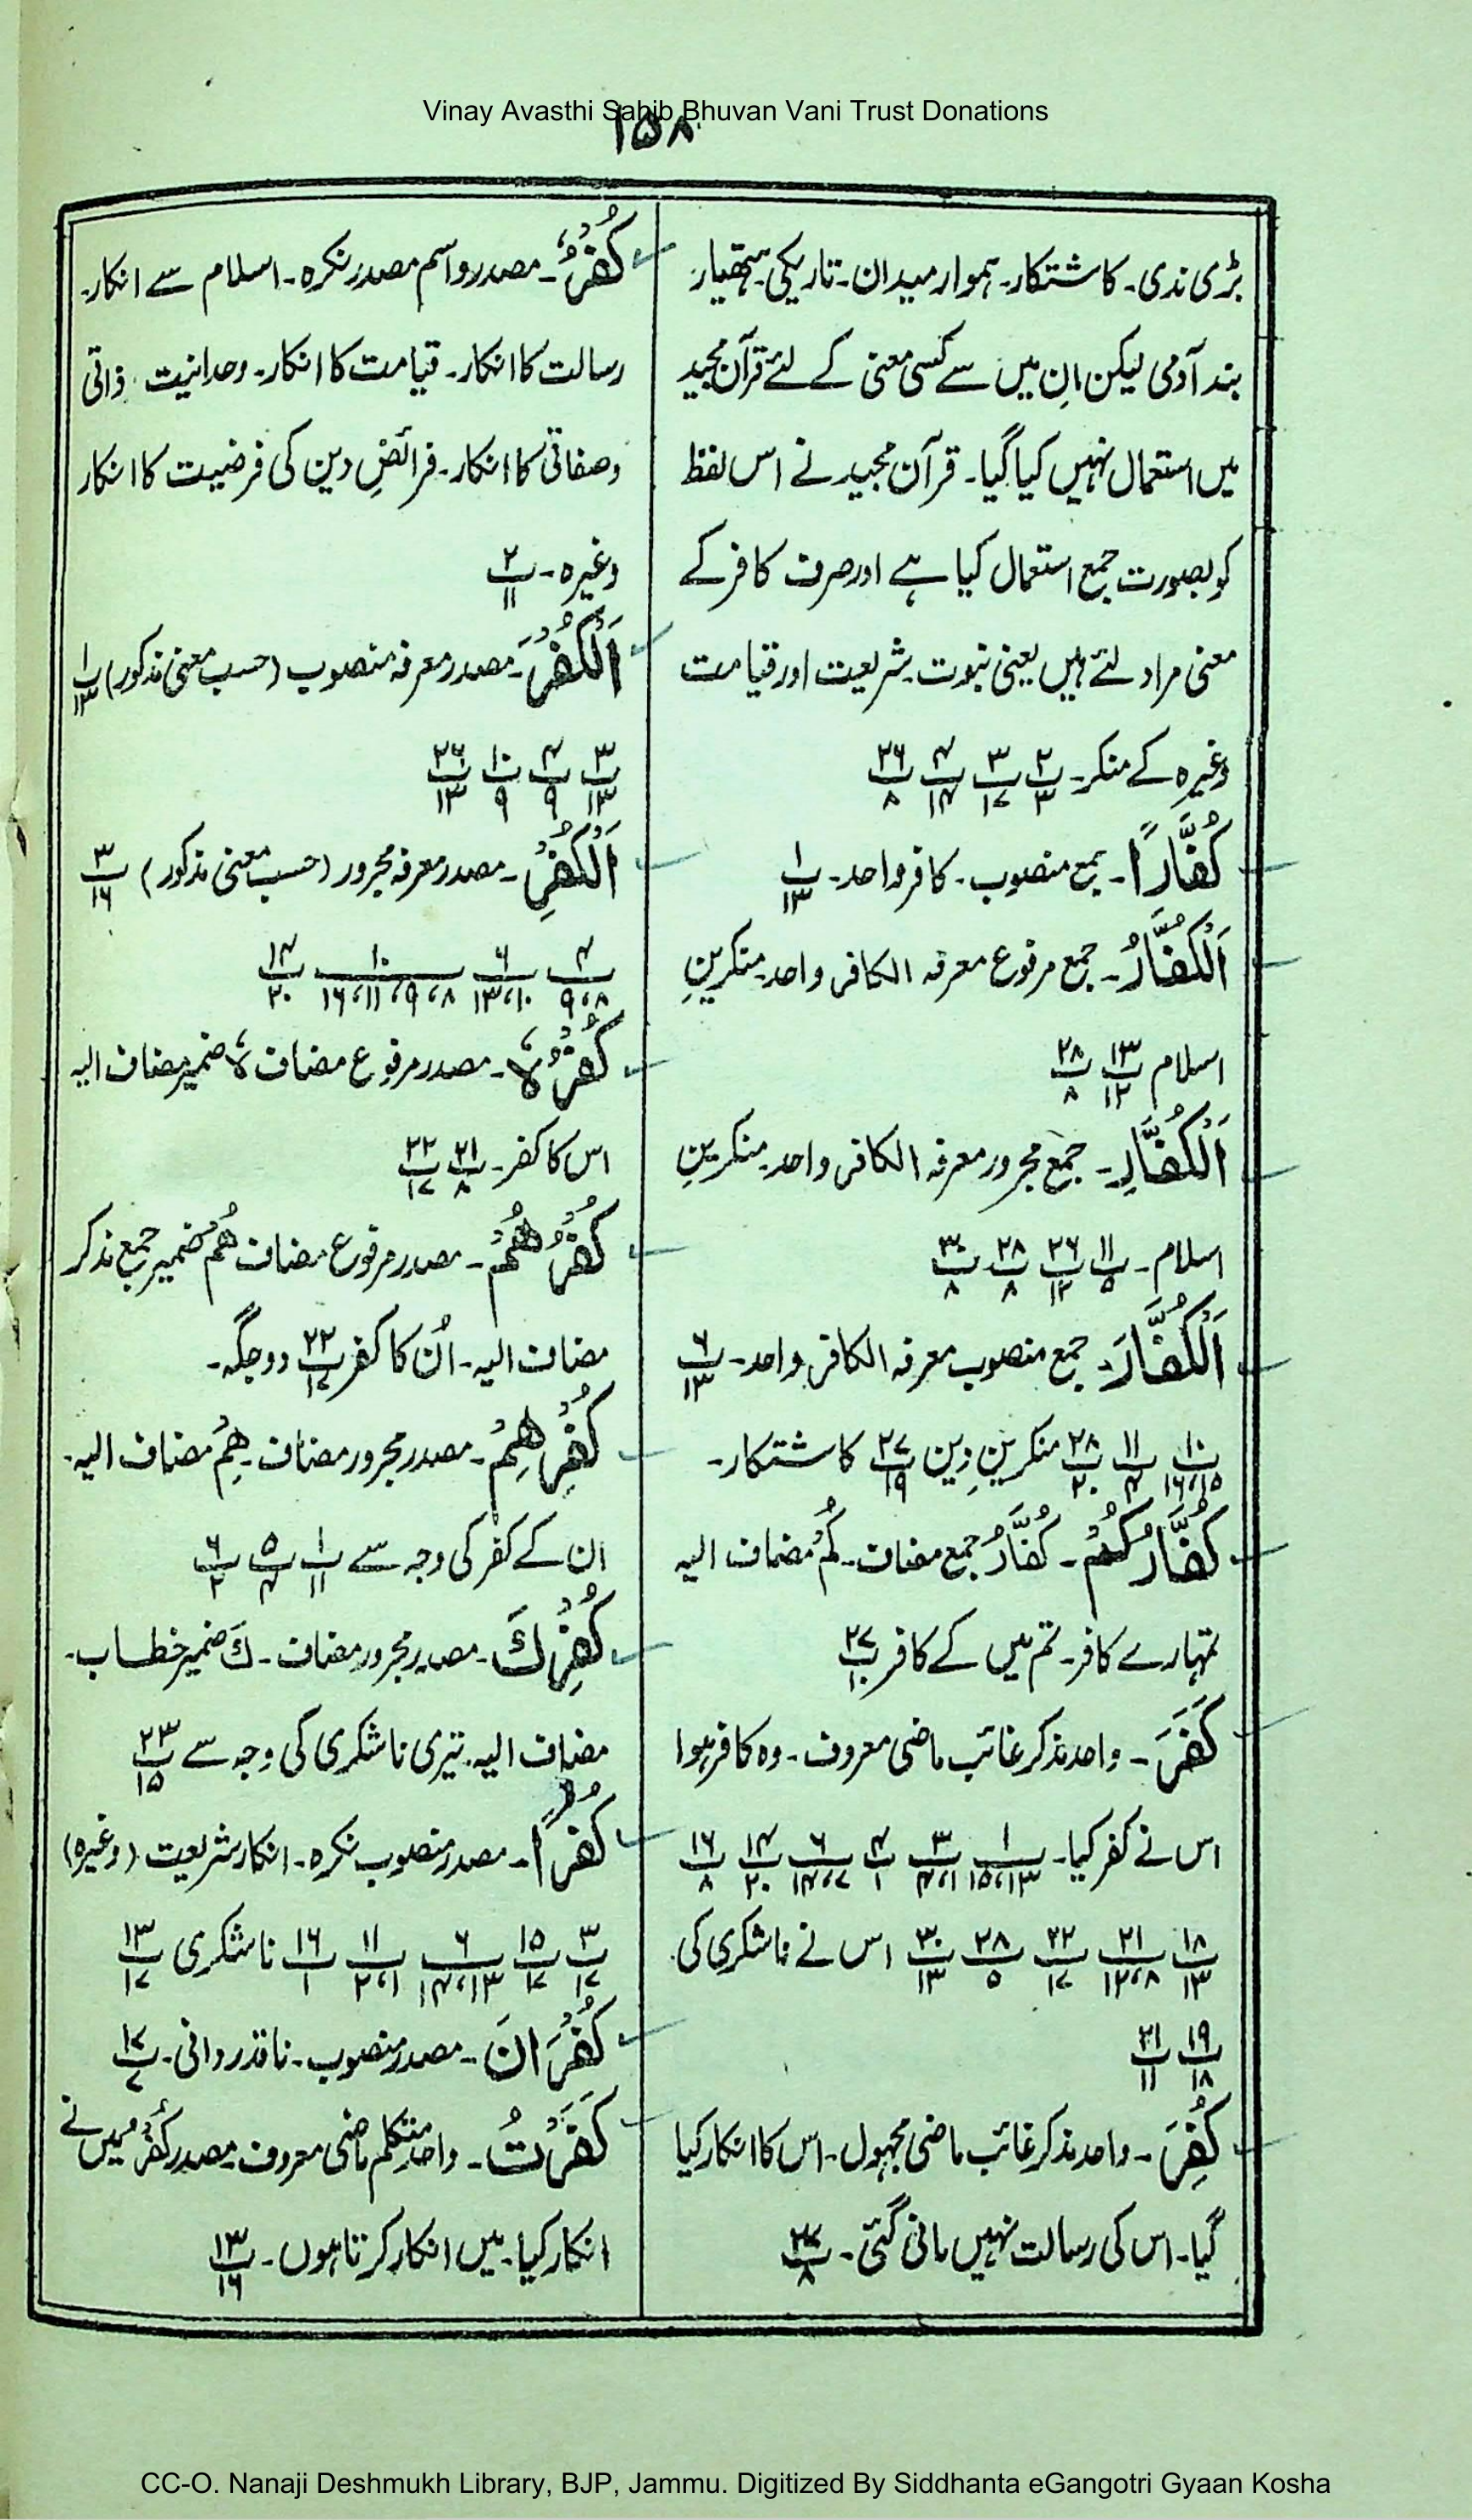 Vinay Avasthi Sahib Bhuvan Vani Trust Donations
۱۵۸
بڑی ندی۔ کاشتکار۔ ہموار میدان۔ تاریکی۔ ہتھیار
بند آدمی لیکن اِن میں سے کسی معنی کے لئے قرآن مجید
میں استعمال نہیں کیا گیا۔ قرآن مجید نے اس لفظ
کو بصورت جمع استعمال کیا ہے اور صرف کافر کے
معنی مراد لئے ہیں یعنی نبوت۔ شریعت اور قیامت
وغیرہ کے منکر۔ ۲/۳ ۳/۱۷ ۴/۱۴ ۲۶/۸
كُفَّارًا۔ جمع منصوب۔ کافر واحد۔ ۱/۱۳
اَلْكُفَّارُ۔ جمع مرفوع معرفہ الکافر واحد۔ منکرینِ
اسلام ۱۳/۱۲ ۲۸/۸
اَلْكُفَّارِ۔ جمع مجرور معرفہ الکافر واحد۔ منکرینِ
اسلام۔ ۱۱/۵ ۲۶/۱۲ ۲۸/۸ ۳۰/۸
اَلْكُفَّارَ۔ جمع منصوب معرفہ الکافر واحد۔ ۶/۱۳
۱۰/۱۶،۱۵ ۱۱/۴ ۲۸/۲۰ منکرینِ دین ۲۷/۱۹ کاشتکار۔
كُفَّارُكُمْ۔ كُفَّارُ جمع مضاف۔ كُمْ مضاف الیہ
تمہارے کافر۔ تم میں کے کافر ۲۷/۱۰
كَفَرَ۔ واحد مذکر غائب ماضی معروف۔ وہ کافر ہوا
اس نے کفر کیا۔ ۱/۱۵،۱۳ ۳/۴،۱ ۴/۱ ۶/۱۴،۷ ۱۴/۲۰ ۱۶/۸
۱۸/۱۳ ۲۱/۱۲،۸ ۲۲/۱۷ ۲۸/۵ ۳۰/۱۳ اس نے ناشکری کی۔
۱۹/۱۸ ۲۱/۱۱
كُفِرَ۔ واحد مذکر غائب ماضی مجہول۔ اس کا انکار کیا
گیا۔ اس کی رسالت نہیں مانی گئی۔ ۲۷/۸
كُفْرٌ۔ مصدر و اسم مصدر نکرہ۔ اسلام سے انکار۔
رسالت کا انکار۔ قیامت کا انکار۔ وحدانیت ذاتی
و صفاتی کا انکار۔ فرائضِ دین کی فرضیت کا انکار
وغیرہ۔ ۲/۱۱
اَلْكُفْرَ۔ مصدر معرفہ منصوب (حسب معنی مذکور) ۱/۱۳
۳/۱۳ ۴/۹ ۱۰/۹ ۲۶/۱۳
اَلْكُفْرِ۔ مصدر معرفہ مجرور (حسب معنی مذکور) ۳/۱۶
۴/۹،۸ ۶/۱۳،۱۰ ۱۰/۱۶،۱۱،۹،۸ ۱۴/۲۰
كُفْرُهٗ۔ مصدر مرفوع مضاف ہٗ ضمیر مضاف الیہ
اس کا کفر۔ ۲۱/۸ ۲۲/۱۷
كُفْرُهُمْ۔ مصدر مرفوع مضاف هُمْ ضمیر جمع مذکر
مضاف الیہ۔ اُن کا کفر ۲۲/۱۷ دو جگہ۔
كُفْرِهِمْ۔ مصدر مجرور مضاف۔ هِمْ مضاف الیہ۔
ان کے کفر کی وجہ سے ۱/۱۱ ۵/۴ ۶/۲
كُفْرِكَ۔ مصدر مجرور مضاف۔ كَ ضمیر خطاب۔
مضاف الیہ۔ تیری ناشکری کی وجہ سے ۲۳/۱۵
كُفْرًا۔ مصدر منصوب نکرہ۔ انکار شریعت (وغیرہ)
۳/۱۷ ۱۵/۱۷ ۶/۱۴،۱۳ ۱۱/۲،۱ ۱۶/۱ ناشکری ۱۳/۱۷
كُفْرَانَ۔ مصدر منصوب۔ ناقدر دانی۔ ۱۷/۷
كَفَرْتُ۔ واحد متکلم ماضی معروف۔ مصدر كُفْرٌ میں نے
انکار کیا۔ میں انکار کرتا ہوں۔ ۱۳/۱۶
CC-O. Nanaji Deshmukh Library, BJP, Jammu. Digitized By Siddhanta eGangotri Gyaan Kosha